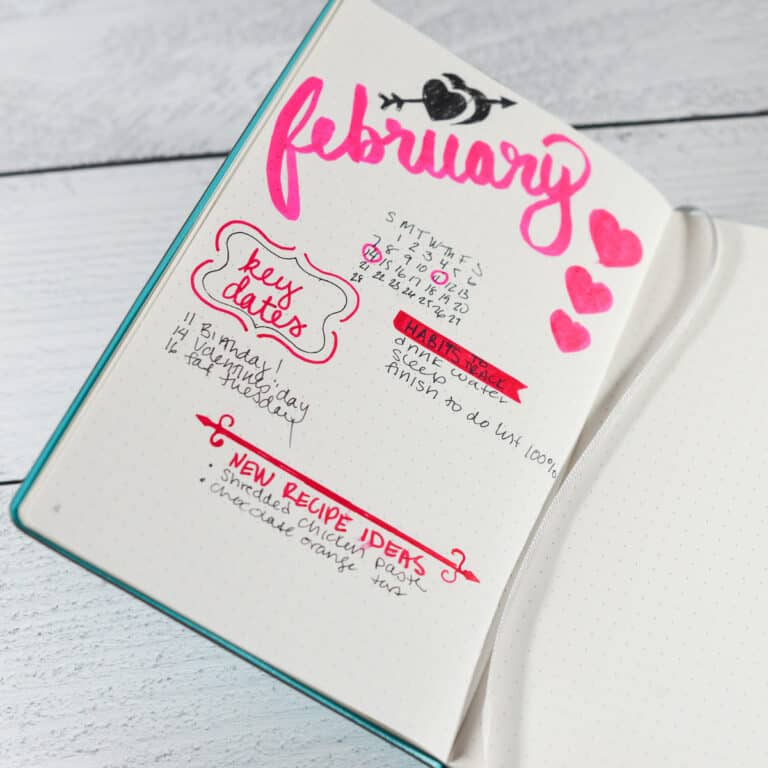 february
S M T W Th F S
1 2 3 4 5 6
7 8 9 10 11 12 13
14 15 16 17 18 19 20
21 22 23 24 25 26 27
28
key
dates
11 Birthday!
14 Valentines day
16 fat tuesday
HABITS TO
TRACK
drink water
sleep
finish to do list 100%
NEW RECIPE IDEAS
• shredded chicken pasta
• chocolate orange